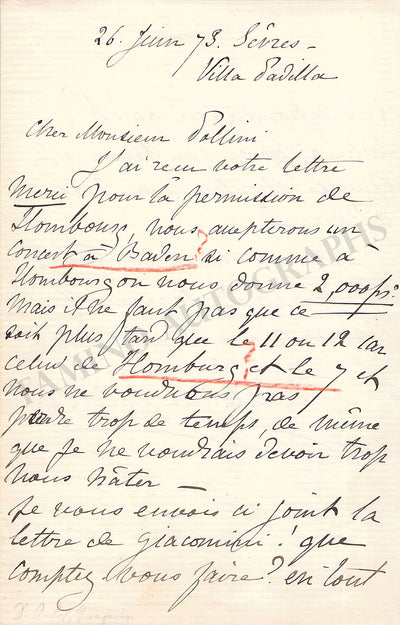 26 Juin 73. Sèvres -
Villa Padilla
Cher Monsieur Pollini
J'ai reçu votre lettre
Merci pour la permission de
Hombourg, nous accepterons un
Concert à Baden ? si comme à
Hombourg on nous donne 2,000 frs
mais il ne faut pas que ce
soit plus tard que le 11 ou 12 car
celui de Homburg ? est le 7 et
nous ne voudrions pas
perdre trop de temps, de même
que je ne voudrais devoir trop
nous hâter -
Je vous envois ci joint la
lettre de Giacomini ! que
comptez vous faire ? en tout
TAMINO AUTOGRAPHS